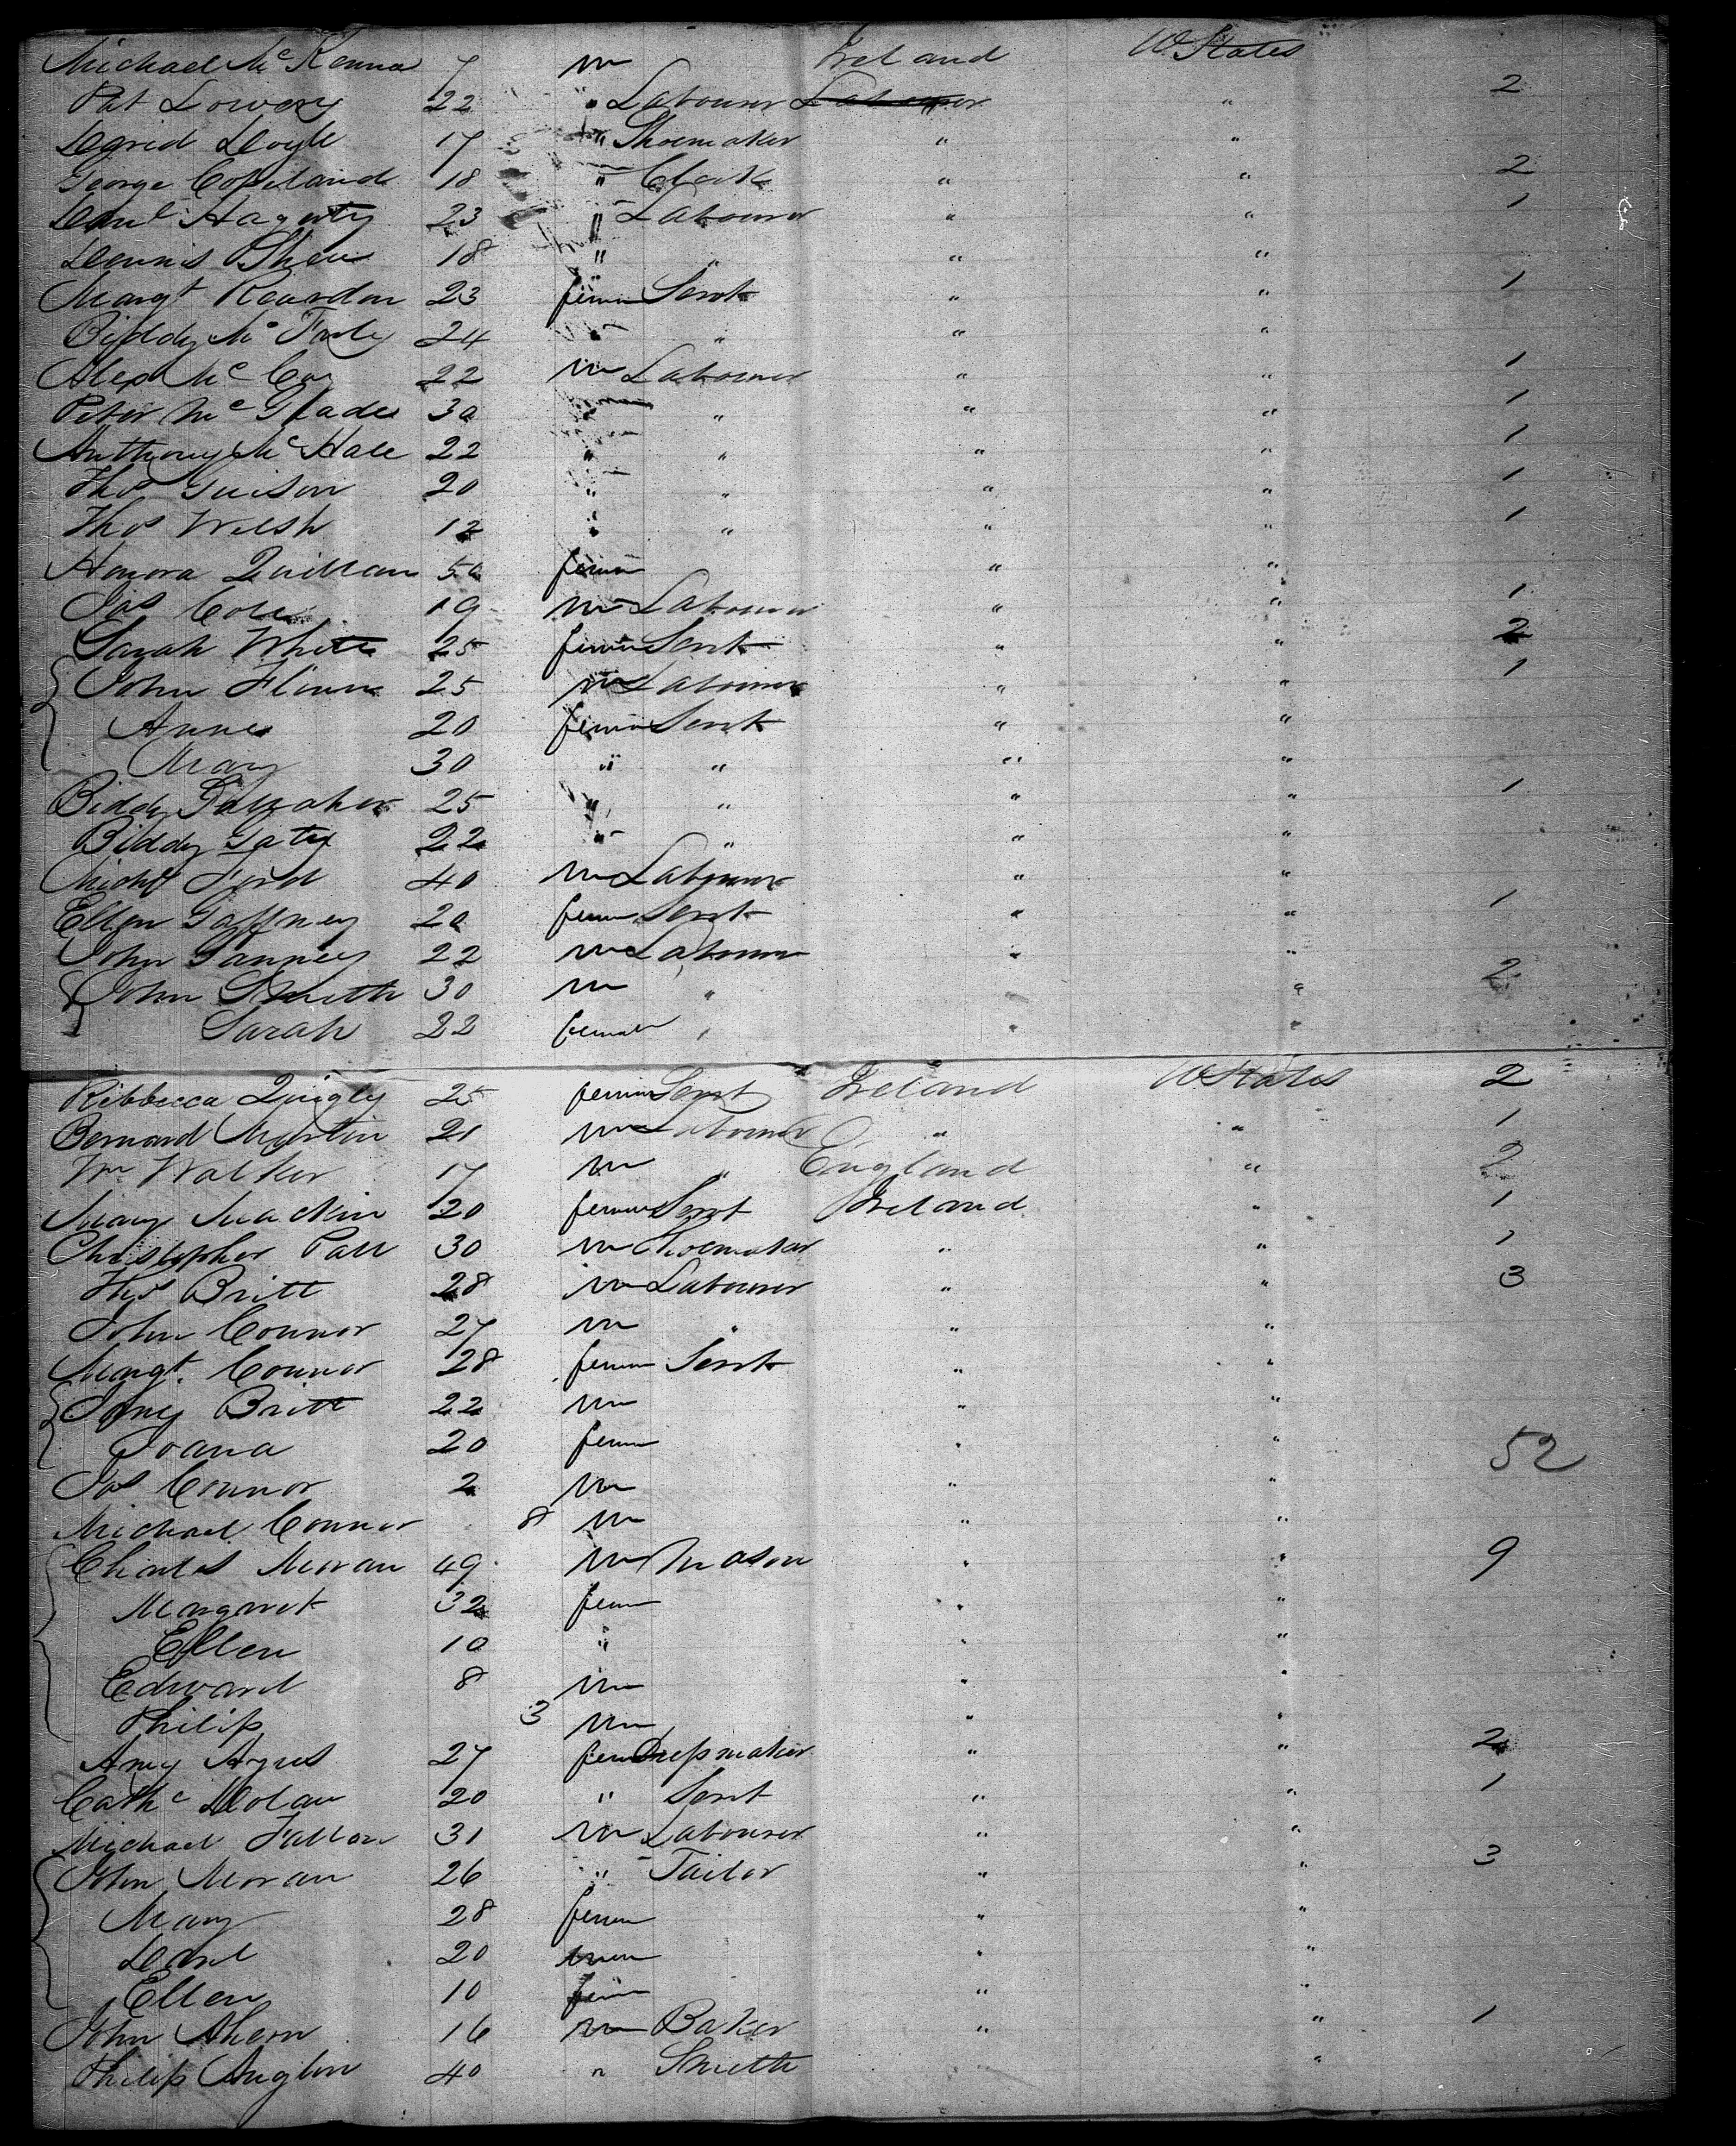 Michael McKenna 7 m Ireland U States
Pat Lowery 22 " Labourer Labourer " " 2
David Doyle 17 " Shoemaker " "
George Copeland 18 " Clerk " " 2
Danl Hagerty 23 " Labourer " " 1
Dennis Shea 18 " " " "
Margt Reardon 23 fem Servt " " 1
Biddy Mc 24 " " " "
Alexr McCoy 22 m Labourer " " 1
Peter McGlade 30 " " " " 1
Anthony McHale 22 " " " " 1
Thos 20 " " " " 1
Thos Welsh 12 " " " " 1
Honora Quillan 50 fem " "
Jas Cole 19 m Labourer " " 1
Sarah White 25 fem Servt " " 2
John Flinn 25 m Labourer " " 1
Anne 20 fem Servt " "
Mary 30 " " " "
Biddy 25 " " " " 1
Biddy 22 " " " "
Michl Ford 40 m Labourer " "
Ellen Gaffney 20 fem Servt " " 1
John 22 m Labourer " "
John Smith 30 m " " " 2
Sarah 22 female " " "
Ribbecca Quigly 25 fem Servt Ireland U States 2
Bernard Martin 21 m Labourer " " 1
Wm Walker 17 m " England " 2
Mary Mackin 20 fem Servt Ireland " 1
Christopher 30 m Shoemaker " " 1
Thos Britt 28 m Labourer " " 3
John Connor 27 m " " "
Margt. Connor 28 fem Servt " "
Britt 22 m " "
Joana 20 fem " " 52
Jas Connor 2 m " "
Michael Connor 8 m " "
Charles Moran 49 m Mason " " 9
Margaret 32 fem " "
Ellen 10 " " "
Edward 8 m " "
Philip 3 m " "
Amy 27 fem Dressmaker " " 2
Cathe Dolan 20 " Servt " " 1
Michael Fallon 31 m Labourer " "
John Moran 26 " Tailor " " 3
Mary 28 fem " "
Danl 20 m " "
Ellen 10 fem " "
John Ahern 16 m Baker " " 1
Philip 40 " Smith "